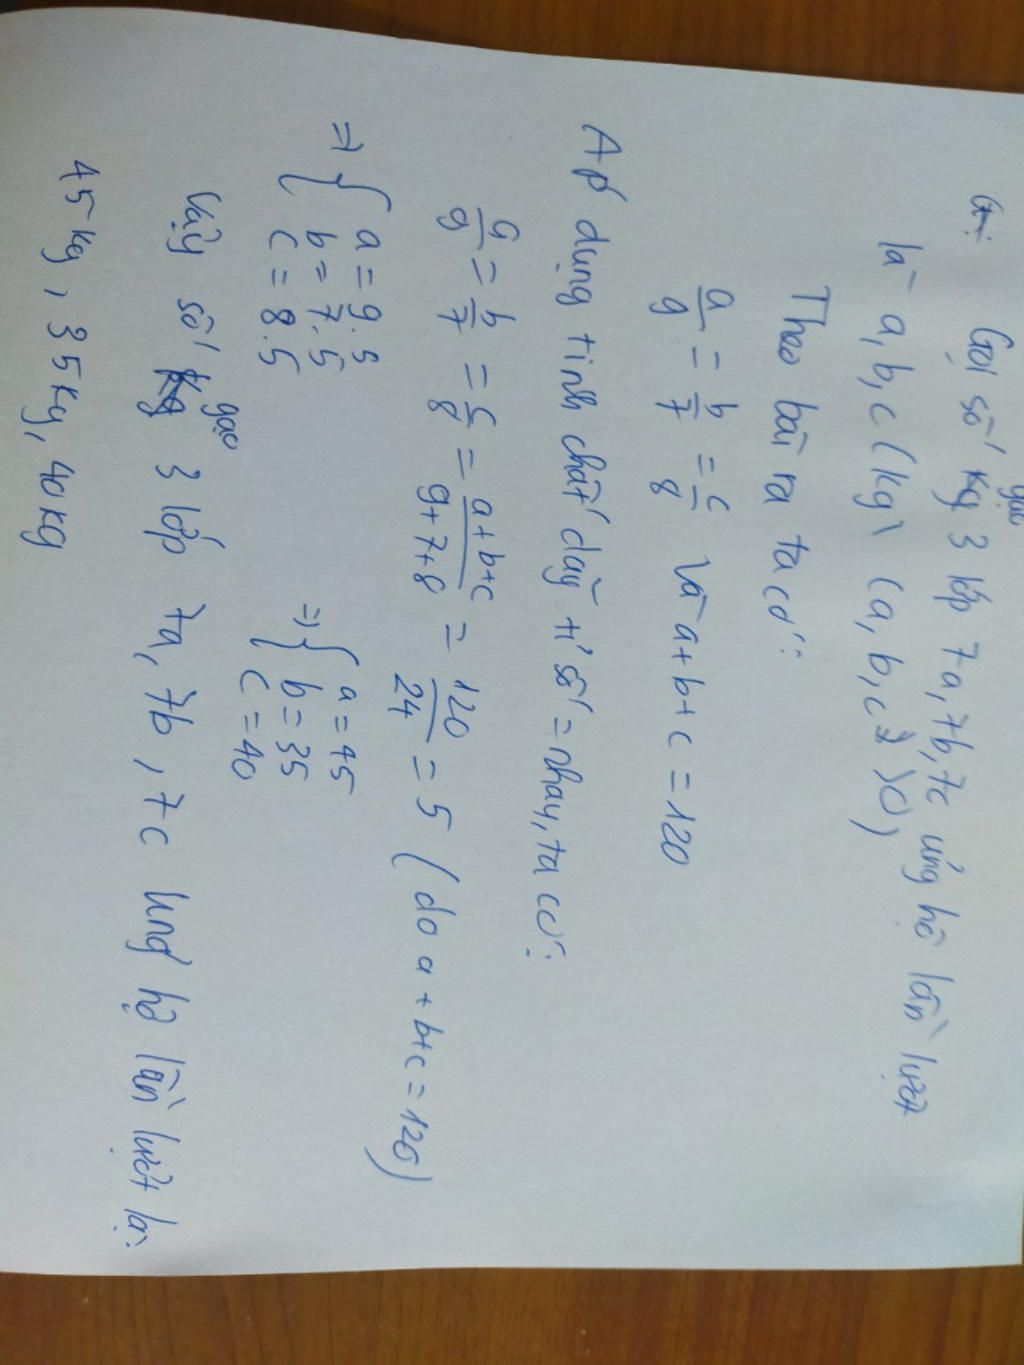 Gọi số kg gạo 3 lớp 7a, 7b, 7c ủng hộ lần lượt
là a, b, c (kg) (a, b, c > 0)
Theo bài ra ta có:
a/9 = b/7 = c/8 và a + b + c = 120
Áp dụng tính chất dãy tỉ số = nhau, ta có:
a/9 = b/7 = c/8 = a+b+c/9+7+8 = 120/24 = 5 (do a + b + c = 120)
=> { a = 9.5 => { a = 45
b = 7.5 b = 35
c = 8.5 c = 40
Vậy số gạo 3 lớp 7a, 7b, 7c ủng hộ lần lượt là:
45 kg, 35 kg, 40 kg